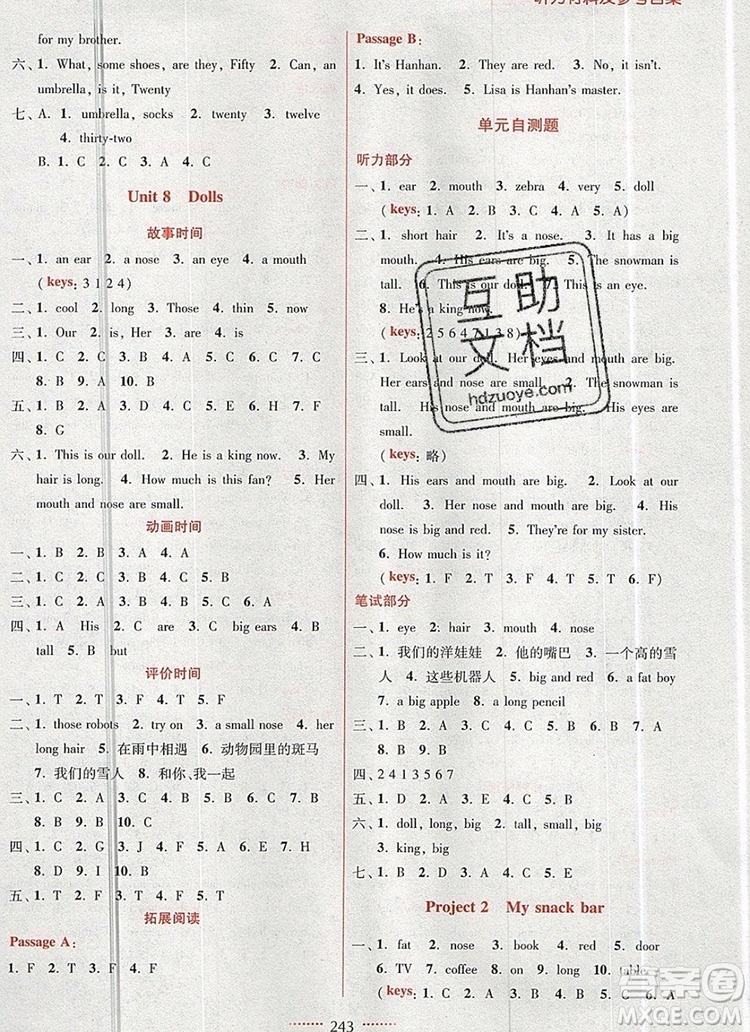 听力材料及参考答案
for my brother.
六、1. What, some shoes, are they, Fifty 2. Can, an
umbrella, is it, Twenty
七、A. 1. umbrella, socks 2. twenty 3. twelve
4. thirty-two
B. 1. C 2. B 3. A 4. C
Unit 8 Dolls
故事时间
一、1. an ear 2. a nose 3. an eye 4. a mouth
(keys: 3 1 2 4)
二、1. cool 2. long 3. Those 4. thin 5. now
三、1. Our 2. is 3. an 4. are 5. is
四、1. C 2. C 3. B 4. C 5. C 6. A 7. C
8. B 9. A 10. B
五、1. D 2. F 3. E 4. H 5. B 6. C 7. A
8. G
六、1. This is our doll. 2. He is a king now. 3. My
hair is long. 4. How much is this fan? 5. Her
mouth and nose are small.
动画时间
一、1. B 2. B 3. A 4. A
二、1. C 2. B 3. A 4. B 5. B
三、1. C 2. B 3. B 4. C 5. C 6. A
四、1. A His 2. C are 3. C big ears 4. B
tall 5. B but
评价时间
一、1. T 2. T 3. F 4. F 5. T
二、1. those robots 2. try on 3. a small nose 4. her
long hair 5. 在雨中相遇 6. 动物园里的斑马
7. 我们的雪人 8. 和你、我一起
三、1. C 2. B 3. A 4. B 5. C 6. C 7. B
8. B 9. B 10. C
四、1. C 2. H 3. F 4. A 5. G 6. E 7. J
8. D 9. I 10. B
五、1. T 2. T 3. F 4. T 5. F
拓展阅读
Passage A:
1. F 2. T 3. F 4. T 5. F
Passage B:
1. It's Hanhan. 2. They are red. 3. No, it isn't.
4. Yes, it does. 5. Lisa is Hanhan's master.
单元自测题
听力部分
一、1. ear 2. mouth 3. zebra 4. very 5. doll
(keys: 1. A 2. B 3. B 4. B 5. A)
二、1. short hair 2. It's a nose. 3. It has a big
mouth. 4. His ears are big. 5. The snowman is
tall. 6. This is our doll. 7. This is an eye.
8. He is a king now.
(keys: 2 5 6 4 7 1 3 8)
三、1. Look at our doll. Her eyes and mouth are big.
Her ears and nose are small. 2. This is our doll.
His nose and mouth are big. His ears and eyes are
small.
(keys: 略)
四、1. His eyes and mouth are big. 2. Look at our
dolls. 3. Her nose and mouth are big. 4. His
mouse is big and red. 5. They're for my sister.
6. How much is it?
(keys: 1. F 2. T 3. F 4. T 5. T 6. F)
笔试部分
一、1. eye 2. hair 3. mouth 4. nose
二、1. 我们的洋娃娃 2. 他的嘴巴 3. 一个高的雪
人 4. 这些机器人 5. a red nose 6. a fat boy
7. a big apple 8. a long pencil
三、1. B 2. A 3. C 4. C 5. B 6. C 7. A
8. B 9. B
四、2 4 1 3 5 6 7
五、1. D 2. A 3. E 4. C 5. B
六、1. doll, long, big 2. tall, small, big
3. king, big
七、1. B 2. A 3. C 4. C 5. B
Project 2 My snack bar
一、1. fat 2. nose 3. book 4. red 5. door
6. TV 7. coffee 8. on 9. hot 10. table
(keys: 1. A 2. B 3. B 4. C 5. C 6. A
243
互助文档
hdzuoye.com
答案圈
MXQE.COM